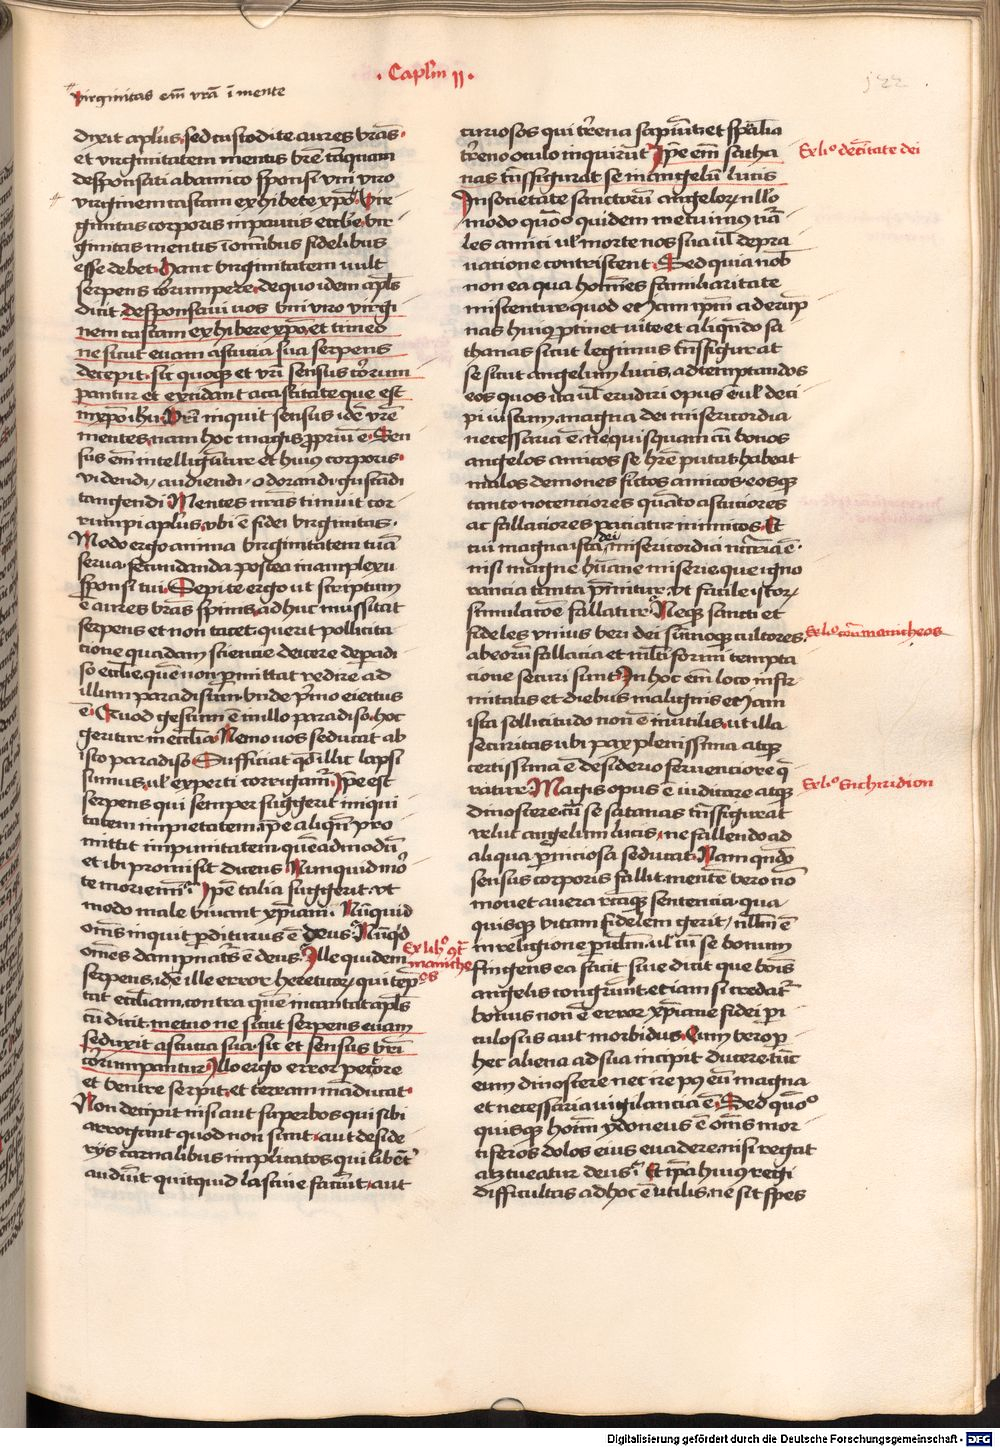 · Caplm II ·
122
virginitas em̄ vr̄a ī mente
dixit apl̄us. sed custodite aures vr̄as.
et virginitatem mentis vr̄e tāquam
desponsati ab amico sponsi vni viro
virginem castam exhibete xp̄o. Vir
ginitas corporis in paucis eccl̄ie. vir
ginitas mentis ī omībus fidelibus
esse debet. hanc virginitatem vult
serpens corūmpere. de quo idem apl̄s
dicit. desponsaui uos vni viro virgi
nem castam exhibere xp̄o. et timeo
ne sicut euam astucia sua serpens
decepit. sic quoqȝ et vr̄i sensus cōrum
pantur et excidant a castitate que est
in xp̄o ih̄u. Vr̄i inquit sensus id ē vr̄e
mentes. nam hoc magis ꝓpriū ē. Sen
sus em̄ intelligūtur et huiꝰ corporis.
videndi / audiendi / odorandi / gustādi
tangendi. Mentes nr̄as timuit cor
rumpi apl̄us. vbi ē fidei virginitas.
Modo ergo anima virginitatem tuā
serua. fecundanda postea in amplexu
sponsi tui. Sepite ergo ut scriptum
ē aures vr̄as spinis. adhuc mussitat
serpens et non tacet. querit pollicita
cione quadam sciencie deicere de padi
so eccl̄ie. quē non ꝑmittat redire ad
illum paradisum. vnde p̄mo eiectus
ē. Quod gestum ē in illo paradiso. hoc
geritur in eccl̄ia. Nemo uos seducat ab
isto paradiso. Sufficiat qd̄ illic lapsi
sumus. ul̄ experti corrigam̄. Ip̄e est
serpens qui semper suggerit iniqui
tatem impietatem. ip̄e aliqn̄ pro
mittit impunitatem. quēadmodū
et ibi promisit dicens. Nunquid mo
te moriemī. Ip̄e talia suggerit. vt
modo male viuant xp̄iani. Nūquid
om̄s inquit ꝑditurus ē deus. Nūqd̄
om̄es dampnat̄s ē deus. Ille quidem
serpens. id ē ille error hereticoꝝ qui tēp
tat eccl̄iam. contra quē incantat apl̄s
cū dicit. metuo ne sicut serpens euam
seduxit astucia sua. sic et sensus vr̄i
cōrumpantur. Illo ergo error pectore
et ventre serpit. et terram māducat.
Non decipit nisi aut superbos qui sibi
arrogant quod non sunt. aut deside
rijs carnalibus implicatos. qui libent̄
audiūt quitquid lasciue faciūt. aut
Ex libº 9tᵃ
maniche
os
curiosos qui tr̄ena sapiūt. et sp̄ualia
tr̄eno oculo inquirūt. Ip̄e em̄ satha
nas trāsfigurat se in angelū lucis
Ex liº de cītate dei
In societate sanctorū angeloꝝ nllo
modo quāº quidem metuimꝰ nā
les amici ul̄ morte nos sua ul̄ depra
uacione contristent. Sed quia nob̄
non ea qua hom̄es familiaritate
miscentur. quod etiam ip̄m ad erūp
nas huiꝰ ꝑtinet vite. et aliqn̄do sa
thanas sicut legimus trāsfigurat
se sicut angelum lucis. ad temptandos
eos quos ita ul̄ erudiri opus ē ul̄ deci
pi iustum. magna dei misericordia
necessaria ē. ne quisquam cū bonos
angelos amicos se hr̄e putat. habeat
malos demones fictos amicos. eosqȝ
tanto nocenciores quāto astuciores
ac fallaciores paciatur inimicos. Et
cui magna ista dei misericordia nec̄r̄ia ē.
nisi magne hūane miserie. que igno
rancia tanta p̄mitur. vt facile istoꝝ
simulacōe fallatur. Neqȝ sancti et
fideles vnius veri dei sūmiqȝ cultores.
Ex liº contᵃ manicheos
ab eorum fallacia et mltiformi tempta
cione securi sunt. In hoc em̄ loco infir
mitatis et diebus malignis etiam
ista sollicitudo non ē inutilis. ut illa
securitas ubi pax plenissima atqȝ
certissima ē desiderio feruenciore q̄
ratur. Magis opus ē iudicare atqȝ
Ex liº Enchiridion
dinoscere. cū se satanas trāsfigurat
velut angelum lucis. ne fallendo ad
aliqua ꝑniciosa seducat. Nam qn̄do
sensus corporis fallit. mentē vero nō
mouet a vera rectaqȝ sentencia. qua
quisqȝ vitam fidelem gerit / nllm̄ ē
in religione ꝑiclm̄. ul̄ cū se bonum
fingens ea facit siue dicit que bois
angelis congruūt. etiam si credat̄
bonus non ē error xp̄iane fidei pi
culosus aut morbidus. Cum vero ꝑ
hec aliena ad sua incipit ducere. tūc
eum dinoscere nec ire pꝰ eū magna
et necessaria vigilancia ē. Sed quoº
quisqȝ hom̄ ydoneus ē om̄s mor
tiferos dolos eius euadere. nisi regat
atqȝ tueatur deus. Et ip̄a huiꝰ regi
difficultas ad hoc ē utilis. ne sit spes
Digitalisierung gefördert durch die Deutsche Forschungsgemeinschaft - DFG